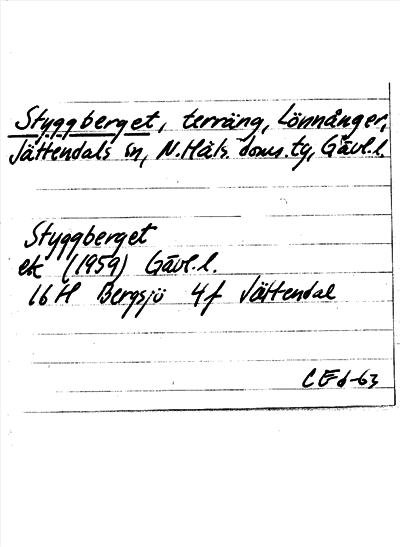 Styggberget, terräng, Lönnånger,
Jättendals sn, N. Häls. doms.ty, Gävl.l.
Styggberget
ek (1959) Gävl.l.
16 H Bergsjö 4f Jättendal
CEd-63